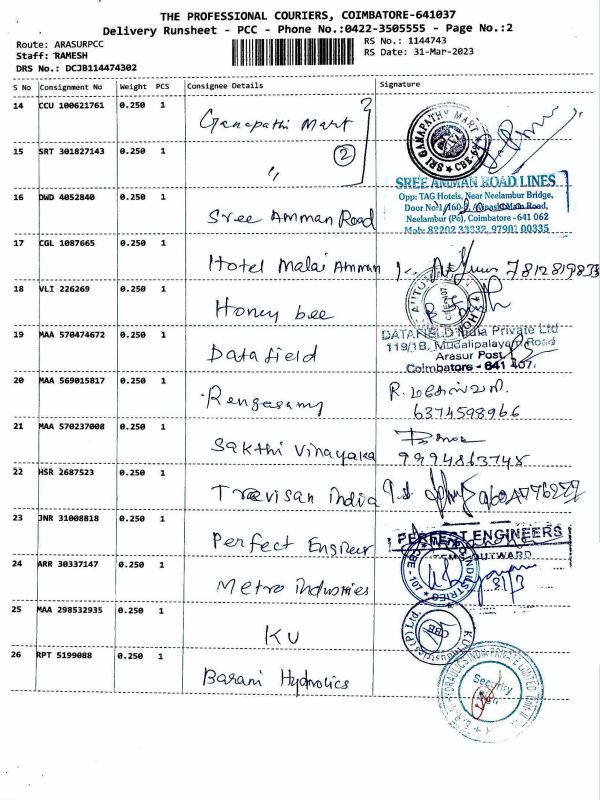 THE PROFESSIONAL COURIERS, COIMBATORE-641037
Delivery Runsheet - PCC - Phone No.:0422-3505555 - Page No.:2
Route: ARASURPCC
Staff: RAMESH
DRS No.: DCJB114474302
RS No.: 1144743
RS Date: 31-Mar-2023
S No Consignment No Weight PCS Consignee Details Signature
14 CCU 100621761 0.250 1 Ganapathi Mart
SRI GANAPATHY MART CBE-62
15 SRT 301827143 0.250 1 〃
2
16 DWD 4052840 0.250 1 Sree Amman Road
SREE AMMAN ROAD LINES
Opp: TAG Hotels, Near Neelambur Bridge,
Door No:1/160-J, Avinashi Main Road,
Neelambur (Po), Coimbatore - 641 062
Mob: 82202 33332, 97901 00335
17 CGL 1087665 0.250 1 Hotel Malai Amman
7812819833
18 VLI 226269 0.250 1 Honey bee
19 MAA 570474672 0.250 1 Datafield
DATAFIELD India Private Ltd
119/1B, Mudalipalayam Road
Arasur Post
Coimbatore - 641 407.
20 MAA 569015817 0.250 1 Rengasamy
R.
6374598966
21 MAA 570237008 0.250 1 Sakthi Vinayaka
9994863748
22 HSR 2687523 0.250 1 Trevisan india
23 JNR 31008818 0.250 1 Perfect Engineer
PERFECT ENGINEERS
OUTWARD
24 ARR 30337147 0.250 1 Metro industries
INDUSTRIES CBE - 107
31/3
25 MAA 298532935 0.250 1 KU
CBE
26 RPT 5199088 0.250 1 Barani Hydrolics
HYDRAULICS INDIA PRIVATE LIMITED
Security